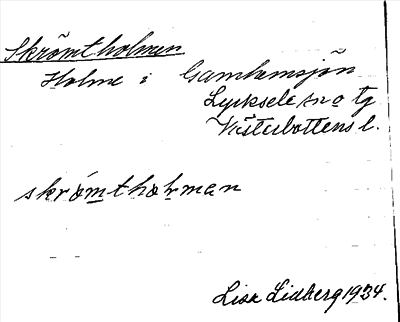 Skrömtholmen
Holme i Gamhamsjön
Lycksele sn o tg
Västerbottens l.
skrömtholman
Lisa Lidberg 1934.